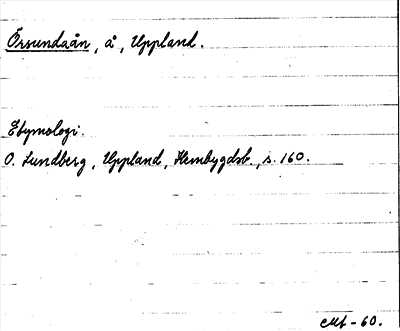 Örsundaån, å, Uppland.
Etymologi.
O. Lundberg, Uppland, Hembygdsb., s. 160.
-60.